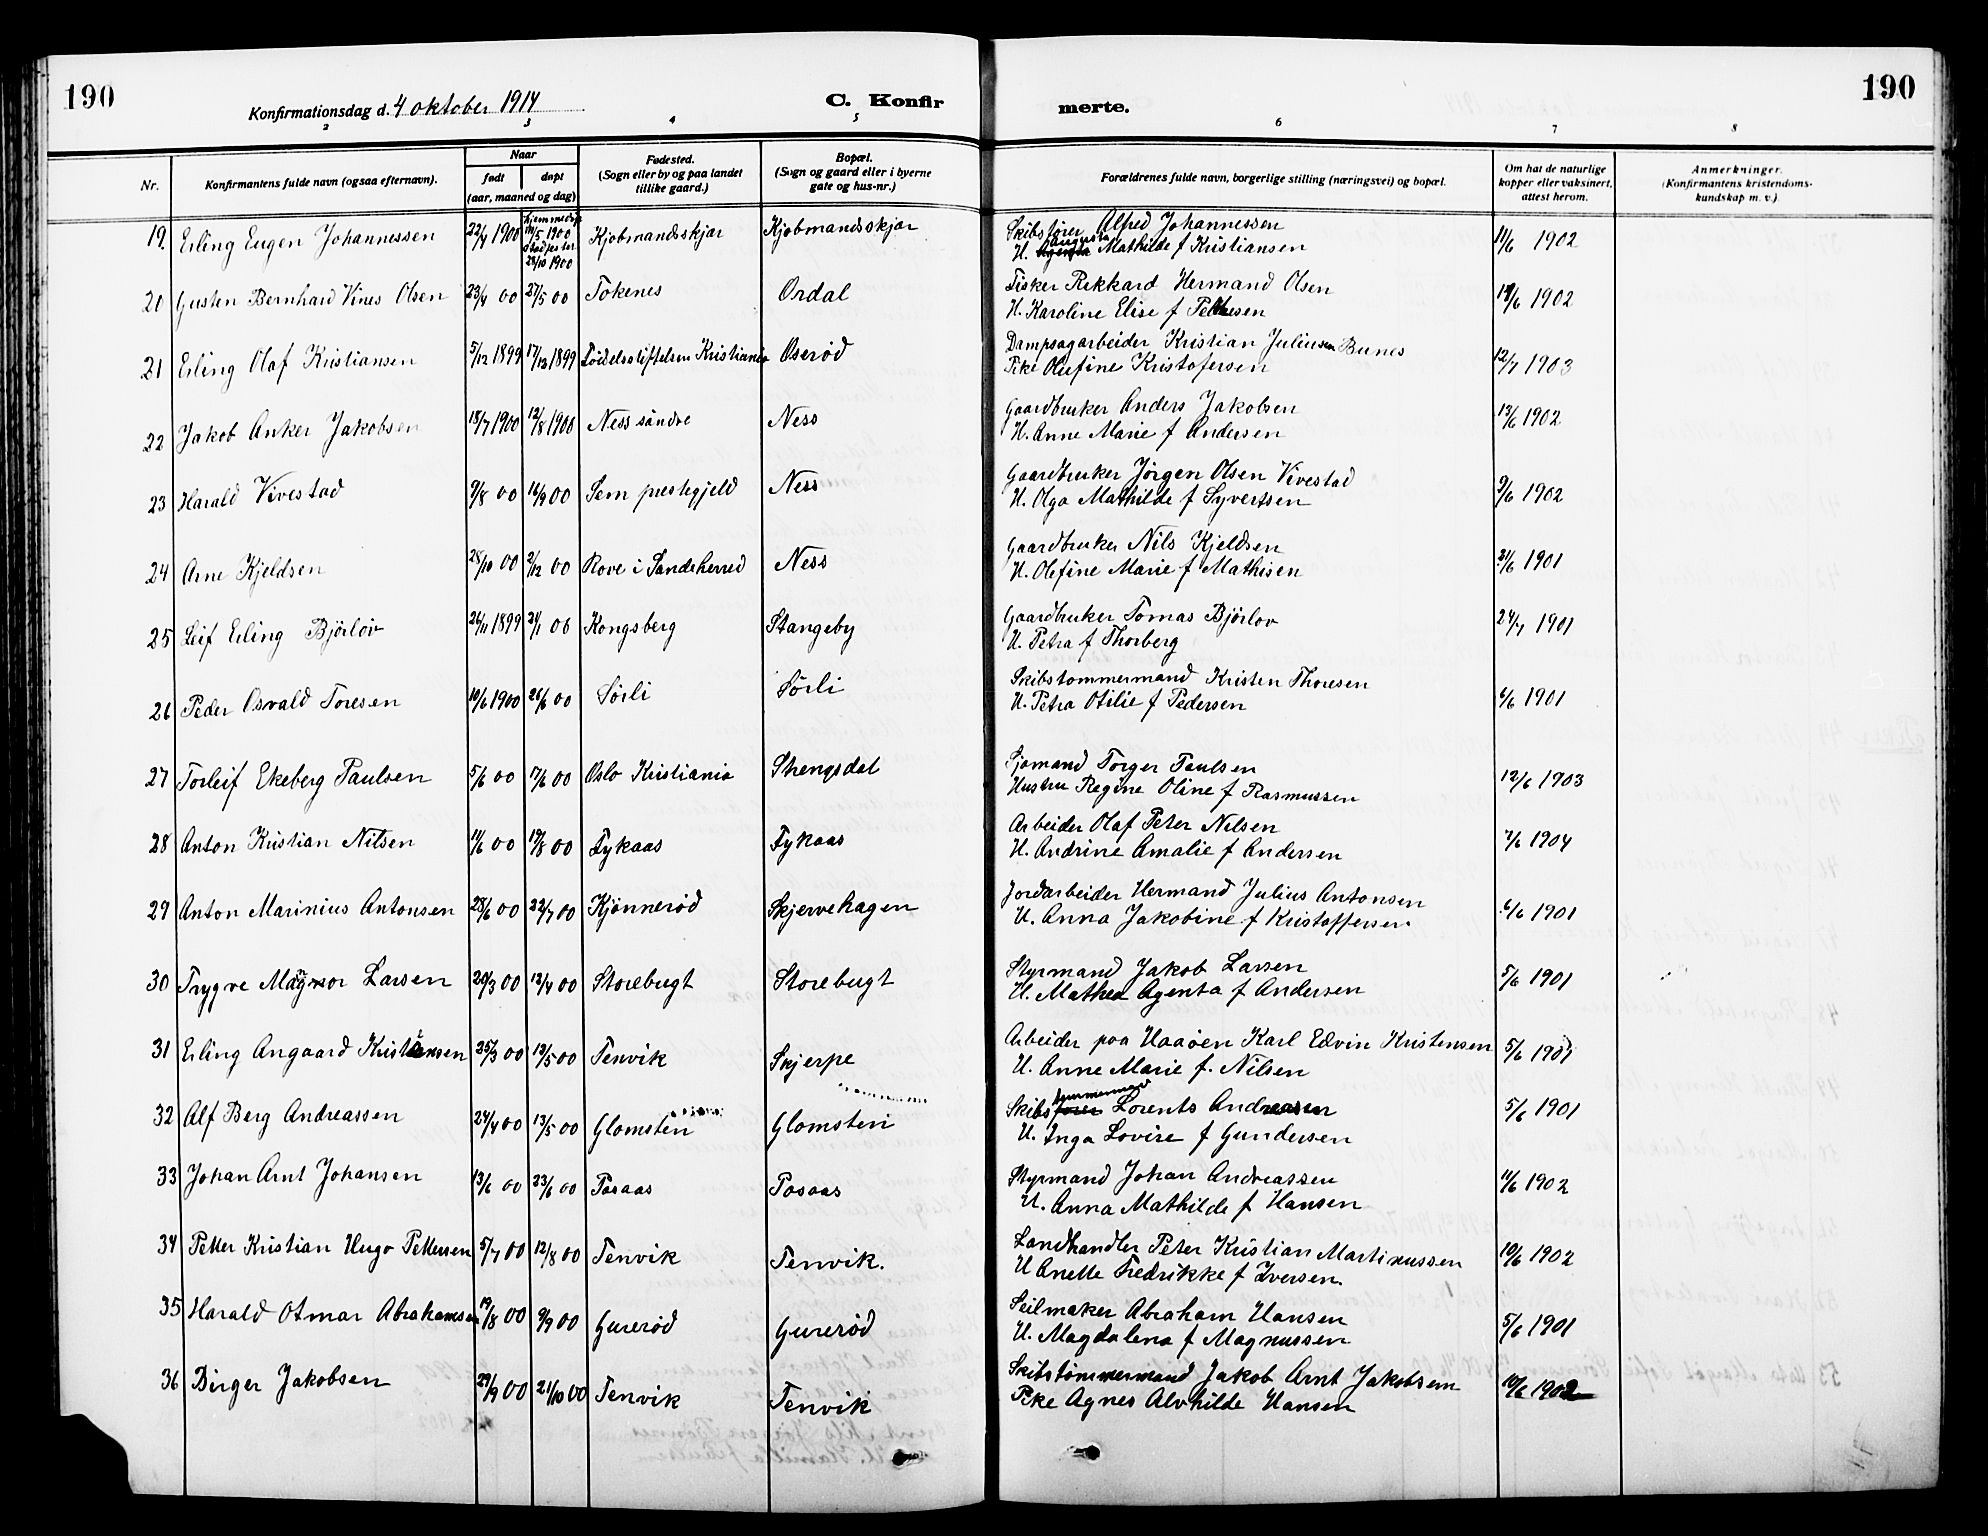 190
Konfirmationsdag d. 4 oktober 1914
C. Konfirmerte.
190
2 3 4 5 6 7 8
Nr. Konfirmantens fulde navn (ogsaa efternavn). Naar født døpt (aar, maaned og dag) Fødested. (Sogn eller by og paa landet tillike gaard.) Bopæl. (Sogn og gaard eller i byerne gate og hus-nr.) Forældrenes fulde navn, borgerlige stilling (næringsvei) og bopæl. Om hat de naturlige kopper eller vaksinert, attest herom. Anmerkninger. (Konfirmantens kristendomskundskap m. v.).
19. Erling Eugen Johannessen 22/4 1900 hjemmedøpt 11/5 1900 stadfestet 28/10 1900 Kjøbmandsskjær Kjøbmandsskjær Skibsfører Alfred Johannessen
H. Augusta Mathilde f Kristiansen 11/6 1902
20 Gusten Bernhard Vines Olsen 23/4 00 27/5 00 Tokenes Ordal Fisker Rikkard Hermand Olsen
H. Karoline Elise f Pettersen 14/6 1902
21 Erling Olaf Kristiansen 5/12 1899 17/12 1899 Fødselsstiftelsen Kristiania Oserød Dampsagarbeider Kristian Juliussen Bunes
Pike Olufine Kristofersen 12/7 1903
22 Jakob Anker Jakobsen 18/7 1900 12/8 1900 Ness søndre Ness Gaardbruker Anders Jakobsen
H. Anne Marie f Andersen 13/6 1902
23 Harald Vivestad 9/8 00 16/9 00 Sem prestegjeld Ness Gaardbruker Jørgen Olsen Vivestad
H. Olga Mathilde f Syvertsen 9/6 1902
24 Arne Kjeldsen 28/10 00 2/12 00 Rove i Sandeherred Ness Gaardbruker Nils Kjeldsen
H. Olefine Marie f Mathisen 21/6 1901
25 Leif Erling Bjørløv 26/11 1899 21/1 00 Kongsberg Stangeby Gaardbruker Tomas Bjørløv
H. Petra f Thorberg 24/7 1901
26 Peder Osvald Toresen 10/6 1900 26/6 00 Sørli Sørli Skibstømmermand Kristen Thoresen
H. Petra Otilie f Pedersen 6/6 1901
27 Torleif Ekeberg Paulsen 5/6 00 17/6 00 Oslo Kristiania Strengsdal Sjømand Torger Paulsen
Hustru Regine Oline f Rasmussen 12/6 1903
28 Anton Kristian Nilsen 11/6 00 19/8 00 Fykaas Fykaas Arbeider Olaf Peter Nilsen
H. Andrine Amalie f Andersen 7/6 1904
29 Anton Marinius Antonsen 28/6 00 22/7 00 Kjønnerød Skjervehagen Jordarbeider Hermand Julius Antonsen
H. Anna Jakobine f Kristoffersen 6/6 1901
30 Trygve Magnor Larsen 20/3 00 12/4 00 Storebugt Storebugt Styrmand Jakob Larsen
H. Mathea Agenta f Andersen 5/6 1901
31 Erling Angaard Kristensen 25/3 00 13/5 00 Tenvik Skjerpe Arbeider paa Haaøen Karl Edvin Kristensen
H. Anne Marie f. Nilsen 5/6 1901
32 Alf Berg Andreassen 24/4 00 13/5 00 Glomsten Glomsten Skibstømmermand Lorents Andreassen
H. Inga Lovise f Gundersen 5/6 1901
33 Johan Arnt Johansen 13/6 00 23/6 00 Paaaas Paaaas Styrmand Johan Andreassen
H. Anna Mathilde f Hansen 11/6 1902
34 Petter Kristian Hugo Pettersen 5/7 00 12/8 00 Tenvik Tenvik. Landhandler Peter Kristian Martinussen
H Anette Fredrikke f Iversen. 10/6 1902
35 Harald Otmar Abrahamsen 19/8 00 9/9 00 Gurerød Gurerød Seilmaker Abraham Hansen
H. Magdalena f Magnussen 5/6 1901
36 Birger Jakobsen 29/9 00 21/10 00 Tenvik Tenvik Skibstømmermand Jakob Arnt Jakobsen
Pike Agnes Alvhilde Hansen 10/6 1902